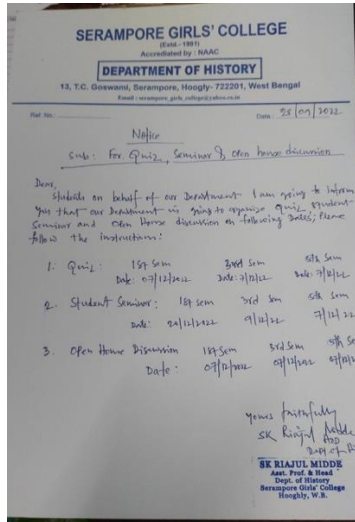 SERAMPORE GIRLS' COLLEGE
(Estd.- 1981)
Accredited by : NAAC
DEPARTMENT OF HISTORY
13, T.C. Goswami, Serampore, Hoogly- 722201, West Bengal
Email : serampore_girls_college@yahoo.co.in
Ref. No. Date : 28/09/2022
Notice
Sub: For Quiz, Seminar & Open house discussion
Dear,
Students on behalf of our Department I am going to inform
you that our Department is going to organise Quiz, student
Seminar and Open House discussion on following Dates; Please
follow the instructions:
1. Quiz : 1st Sem 3rd Sem 5th Sem
Date: 07/12/2022 Date: 7/12/22 Date: 7/12/22
2. Student Seminar : 1st Sem 3rd Sem 5th Sem
Date: 20/12/2022 9/12/22 7/12/22
3. Open House Discussion 1st Sem 3rd Sem 5th Se
Date : 07/12/2022 07/12/22 07/12/22
Yours faithfully
SK Riajul Midde
HOD
Dept of
SK RIAJUL MIDDE
Asst. Prof. & Head
Dept. of History
Serampore Girls' College
Hooghly, W.B.